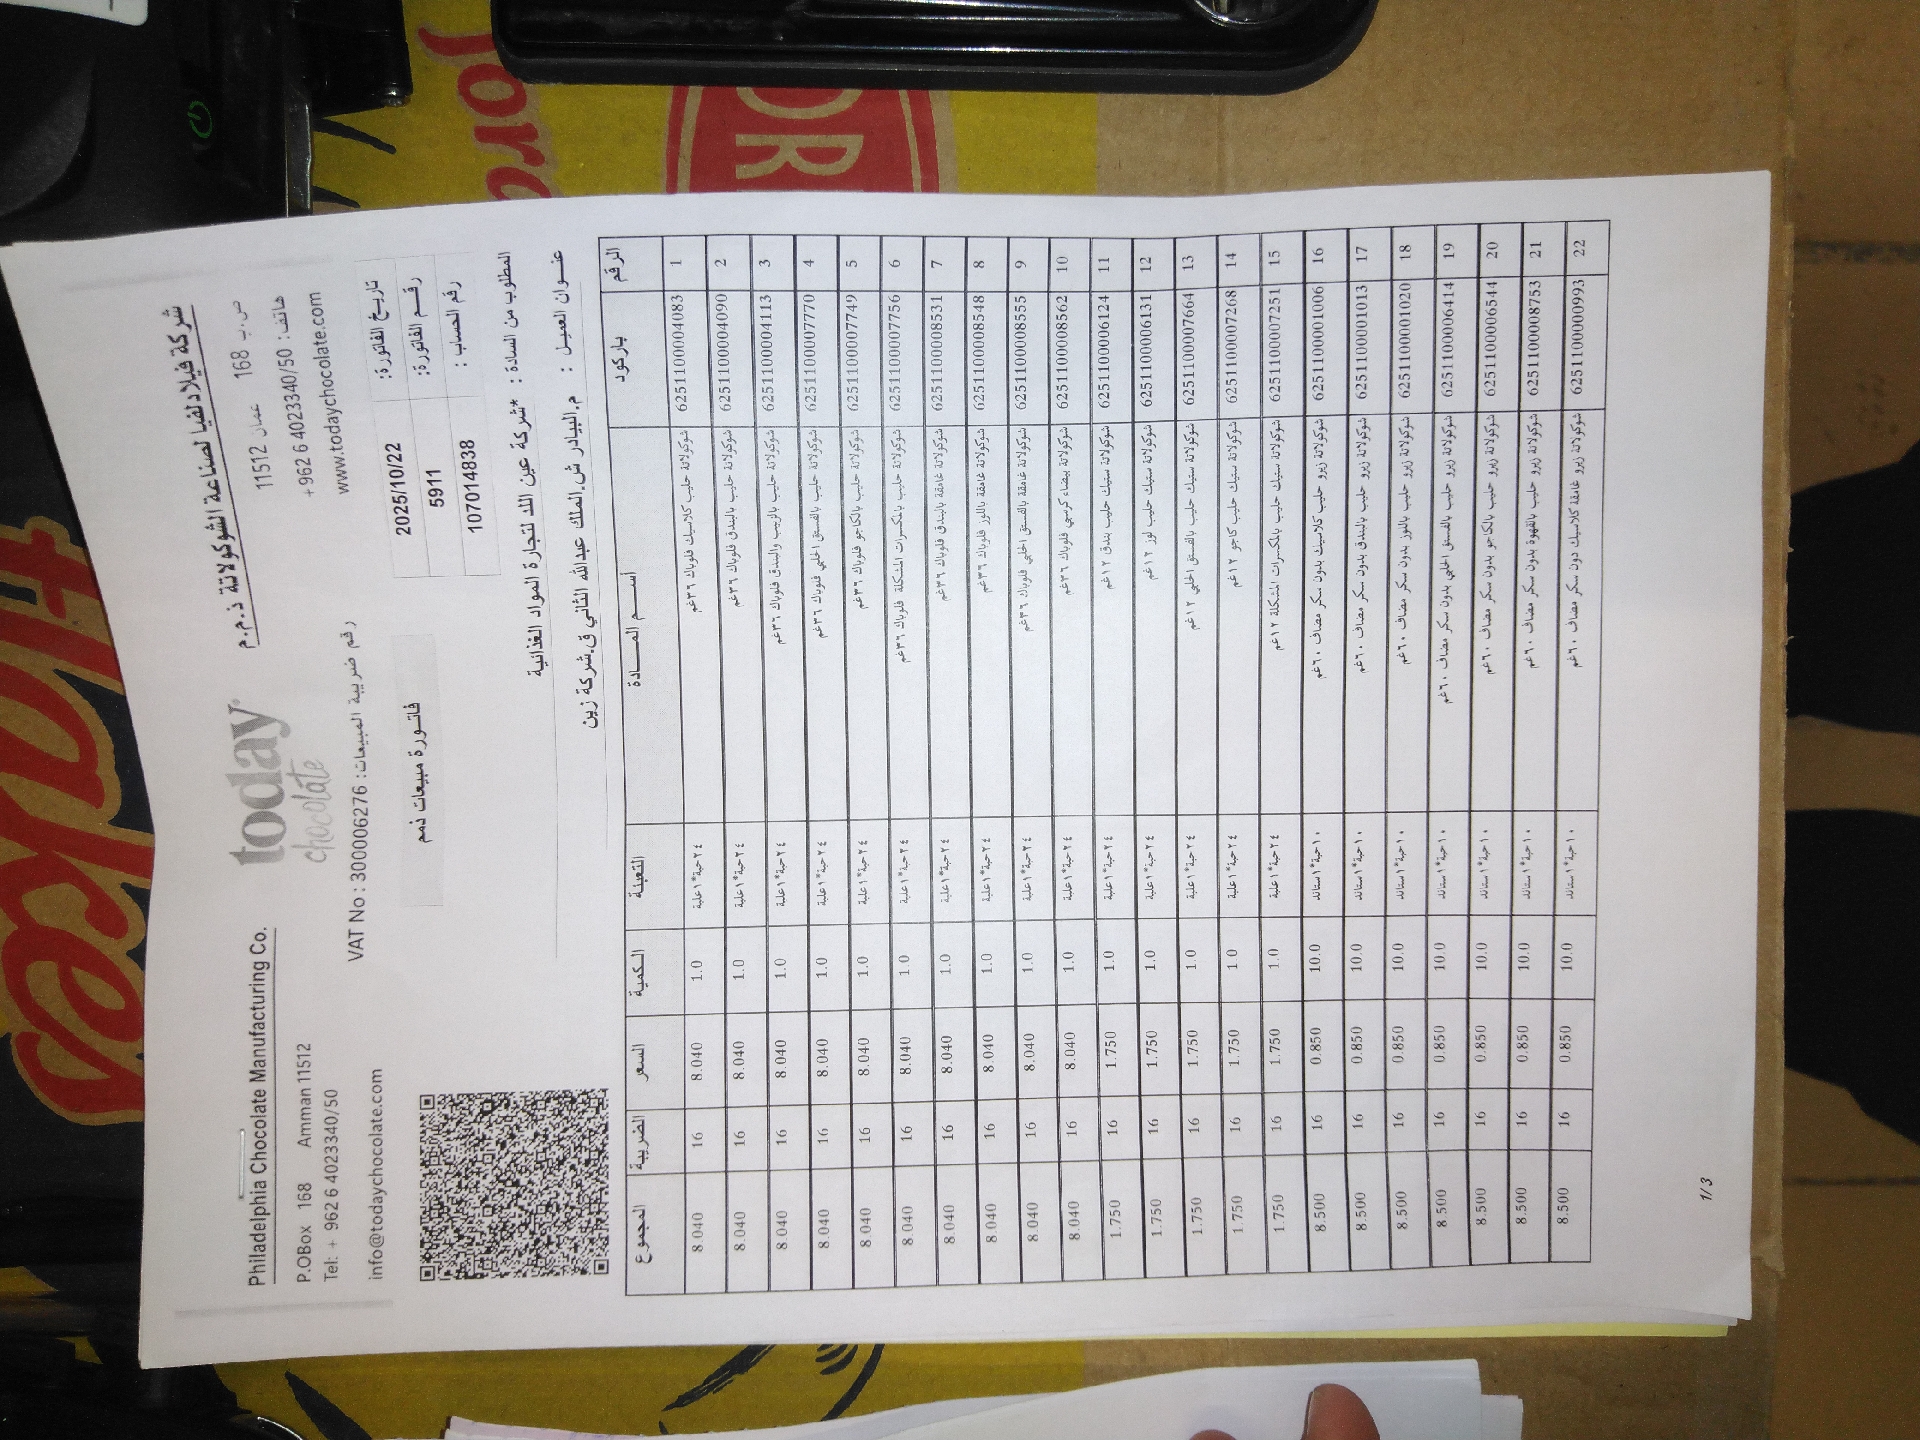 شركة فيلادلفيا لصناعة الشوكولاتة ذ.م.م
ص.ب 168 عمان 11512
هاتف: 962 6 4023340/50 +
www.todaychocolate.com
today
chocolate
Philadelphia Chocolate Manufacturing Co.
P.OBox 168 Amman 11512
Tel: + 962 6 4023340/50
info@todaychocolate.com
VAT No : 300006276 :رقم ضريبة المبيعات
تاريخ الفاتورة: 2025/10/22
رقم الفاتورة: 5911
رقم الحساب : 107014838
فاتورة مبيعات ذمم
المطلوب من السادة : *شركة عين اللد لتجارة المواد الغذائية
عنوان العميل : م.البيادر ش.الملك عبدالله الثاني ق.شركة زين
الرقم باركود اسم المادة التعبئة الكمية السعر الضريبة المجموع
1 6251100004083 شوكولاتة حليب كلاسيك فلوباك ٣٦غم ٢٤حبة*١علبة 1.0 8.040 16 8.040
2 6251100004090 شوكولاتة حليب بالبندق فلوباك ٣٦غم ٢٤حبة*١علبة 1.0 8.040 16 8.040
3 6251100004113 شوكولاتة حليب بالزبيب والبندق فلوباك ٣٦غم ٢٤حبة*١علبة 1.0 8.040 16 8.040
4 6251100007770 شوكولاتة حليب بالفستق الحلبي فلوباك ٣٦غم ٢٤حبة*١علبة 1.0 8.040 16 8.040
5 6251100007749 شوكولاتة حليب بالكاجو فلوباك ٣٦غم ٢٤حبة*١علبة 1.0 8.040 16 8.040
6 6251100007756 شوكولاتة حليب بالمكسرات المشكلة فلوباك ٣٦غم ٢٤حبة*١علبة 1.0 8.040 16 8.040
7 6251100008531 شوكولاتة غامقة بالبندق فلوباك ٣٦غم ٢٤حبة*١علبة 1.0 8.040 16 8.040
8 6251100008548 شوكولاتة غامقة باللوز فلوباك ٣٦غم ٢٤حبة*١علبة 1.0 8.040 16 8.040
9 6251100008555 شوكولاتة غامقة بالفستق الحلبي فلوباك ٣٦غم ٢٤حبة*١علبة 1.0 8.040 16 8.040
10 6251100008562 شوكولاتة بيضاء كرسبي فلوباك ٣٦غم ٢٤حبة*١علبة 1.0 8.040 16 8.040
11 6251100006124 شوكولاتة ستيك حليب بندق ١٢غم ٢٤حبة*١علبة 1.0 1.750 16 1.750
12 6251100006131 شوكولاتة ستيك حليب لوز ١٢غم ٢٤حبة*١علبة 1.0 1.750 16 1.750
13 6251100007664 شوكولاتة ستيك حليب بالفستق الحلبي ١٢غم ٢٤حبة*١علبة 1.0 1.750 16 1.750
14 6251100007268 شوكولاتة ستيك حليب كاجو ١٢غم ٢٤حبة*١علبة 1.0 1.750 16 1.750
15 6251100007251 شوكولاتة ستيك حليب بالمكسرات المشكلة ١٢غم ٢٤حبة*١علبة 1.0 1.750 16 1.750
16 6251100001006 شوكولاتة زيرو حليب كلاسيك بدون سكر مضاف ٦٠غم ١٠حبة*١ستاند 10.0 0.850 16 8.500
17 6251100001013 شوكولاتة زيرو حليب بالبندق بدون سكر مضاف ٦٠غم ١٠حبة*١ستاند 10.0 0.850 16 8.500
18 6251100001020 شوكولاتة زيرو حليب باللوز بدون سكر مضاف ٦٠غم ١٠حبة*١ستاند 10.0 0.850 16 8.500
19 6251100006414 شوكولاتة زيرو حليب بالفستق الحلبي بدون سكر مضاف ٦٠غم ١٠حبة*١ستاند 10.0 0.850 16 8.500
20 6251100006544 شوكولاتة زيرو حليب بالكاجو بدون سكر مضاف ٦٠غم ١٠حبة*١ستاند 10.0 0.850 16 8.500
21 6251100008753 شوكولاتة زيرو حليب بالقهوة بدون سكر مضاف ٦٠غم ١٠حبة*١ستاند 10.0 0.850 16 8.500
22 6251100000993 شوكولاتة زيرو غامقة كلاسيك دون سكر مضاف ٦٠غم ١٠حبة*١ستاند 10.0 0.850 16 8.500
1/3